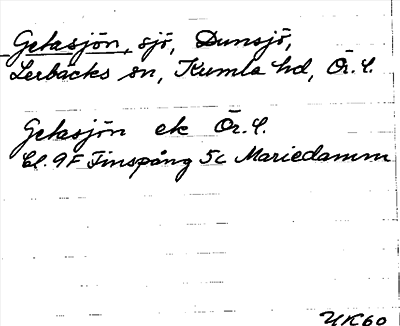 Getasjön, sjö, Dunsjö,
Lerbäcks sn, Kumla hd, Ör. l.
Getasjön ek Ör. l.
Bl. 9F Finspång 5c Mariedamm
UK60